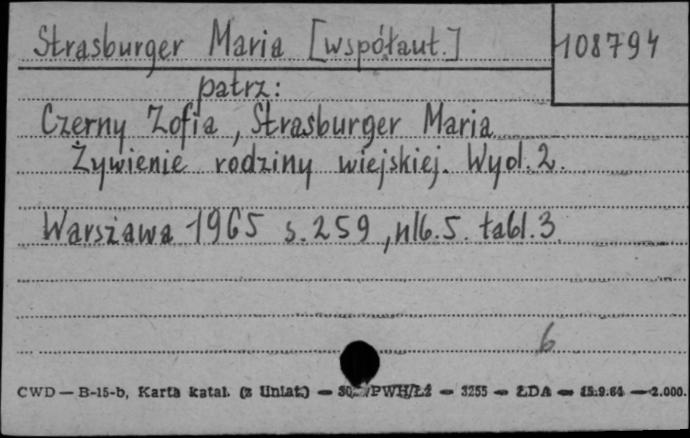 Strasburger Maria [współaut.] 108794
patrz:
Czerny Zofia, Strasburger Maria
Żywienie rodziny wiejskiej. Wyd. 2.
Warszawa 1965 s. 259, nlb. 5. tabl. 3
6
CWD — B-15-b, Karta katal. (z Uniat.) — /PWH/Łż — 3255 — ŁDA — 15.9.64 — 2.000.